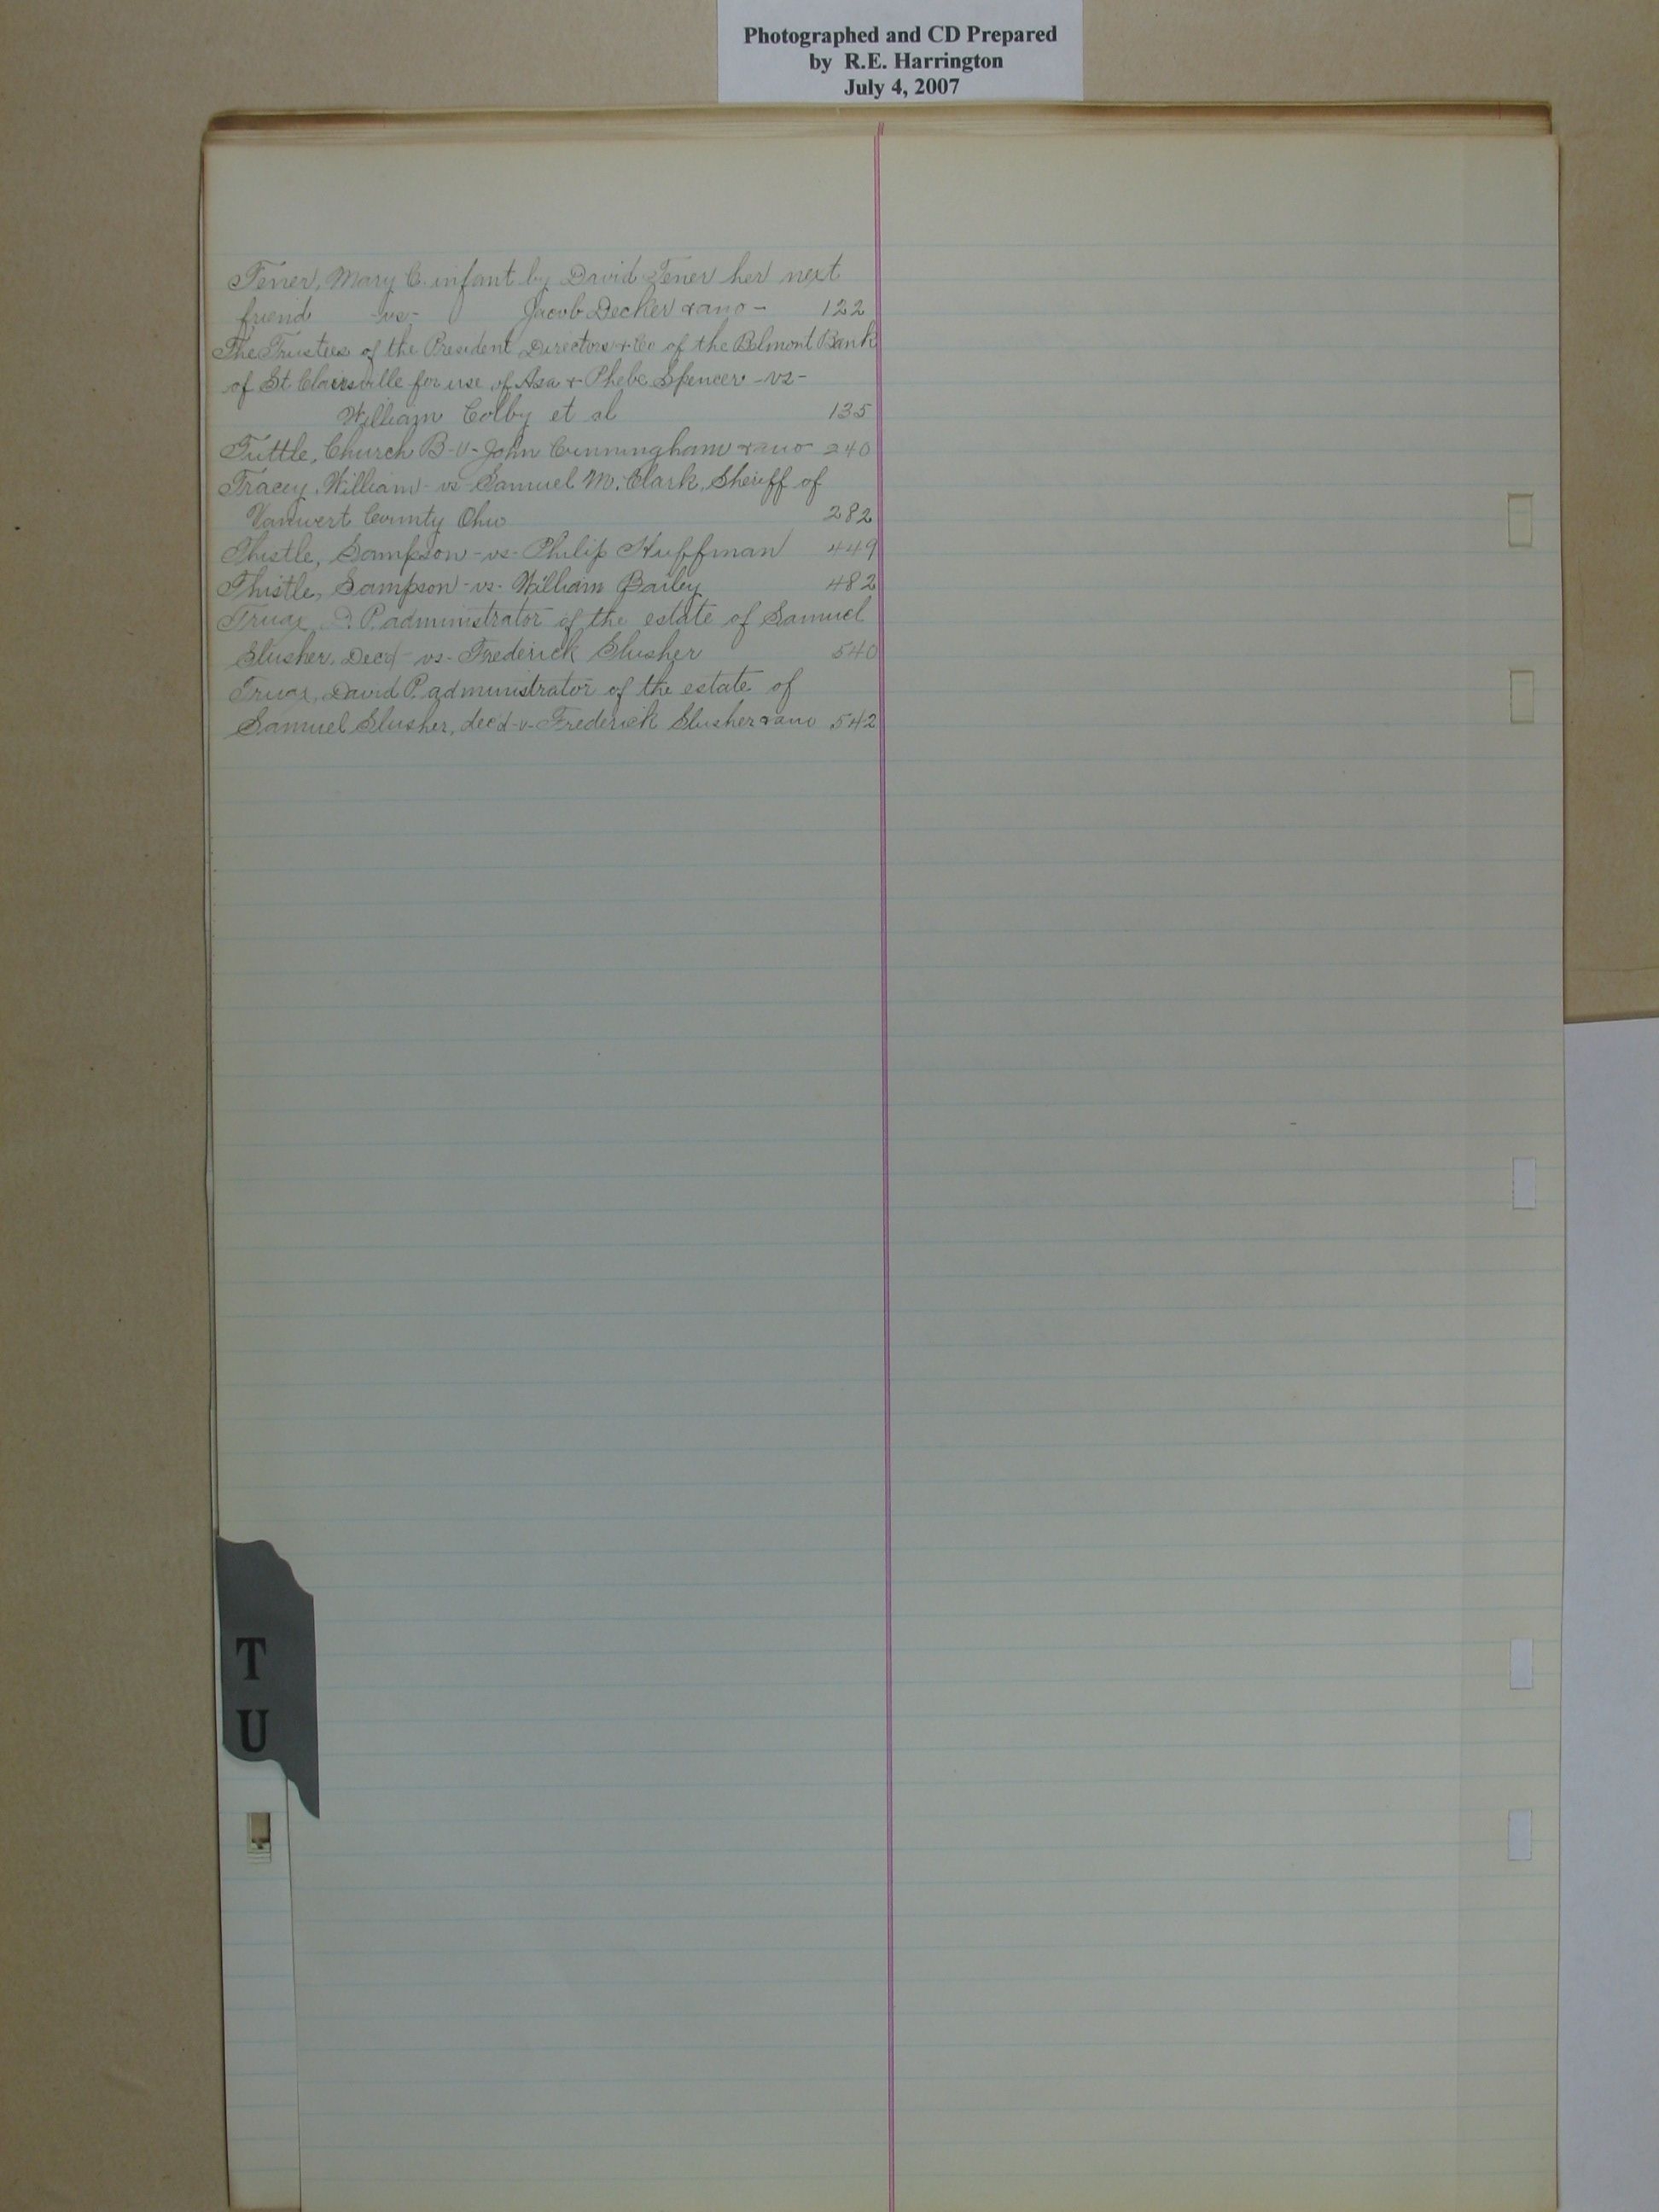 Photographed and CD Prepared
by R.E. Harrington
July 4, 2007
Tener, Mary C. infant by David Tener her next
friend -vs- Jacob Decker & ano - 122
The Trustees of the President Directors & Co of the Belmont Bank
of St Clairsville for use of Asa & Phebe Spencer -vs-
William Colby et al 135
Tuttle, Church B -v- John Cunningham & ano 240
Tracey, William - vs Samuel M. Clark, Sheriff of
Vanwert County Ohio 282
Thistle, Sampson -vs- Philip Huffman 449
Thistle, Sampson -vs- William Bailey 482
D. P. administrator of the estate of Samuel
Slusher, Decd - vs - Frederick Slusher 540
David P. administrator of the estate of
Samuel Slusher, decd -v- Frederick Slusher & ano 542
T
U